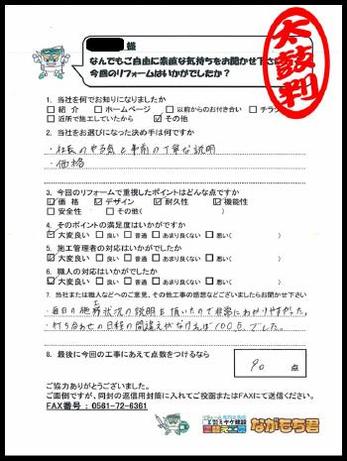 様
太鼓判
なんでもご自由に素直な気持ちをお聞かせ下さい
今回のリフォームはいかがでしたか?
1. 当社を何でお知りになりましたか
□紹 介 □ホームページ □以前からのお付き合い □チラシ
□近所で施工していたから ☑その他
2. 当社をお選びになった決め手は何ですか
・社長のやる気と事前の丁寧な説明
・価格
3. 今回のリフォームで重視したポイントはどんな点ですか
☑価 格 ☑デザイン ☑耐久性 ☑機能性
□安全性 □その他( )
4. そのポイントの満足度はいかがですか
☑大変良い □良い □普通 □あまり良くない □悪い( )
5. 施工管理者の対応はいかがでしたか
☑大変良い □良い □普通 □あまり良くない □悪い( )
6. 職人の対応はいかがでしたか
☑大変良い □良い □普通 □あまり良くない □悪い( )
7. 当社または職人などへのご意見、その他工事の感想などございましたらお聞かせ下さい
・毎日の施工状況の説明も頂いたので非常にわかりやすかった。
・打ち合わせの日程の間違えがなければ100点でした。
8. 最後に今回の工事にあえて点数をつけるなら
90 点
ご協力ありがとうございました。
ご面倒ですが、同封の返信用封筒に入れてご投函またはFAXにて送信ください。
FAX番号 : 0561-72-6361
ミヤケ建設
ながもち君